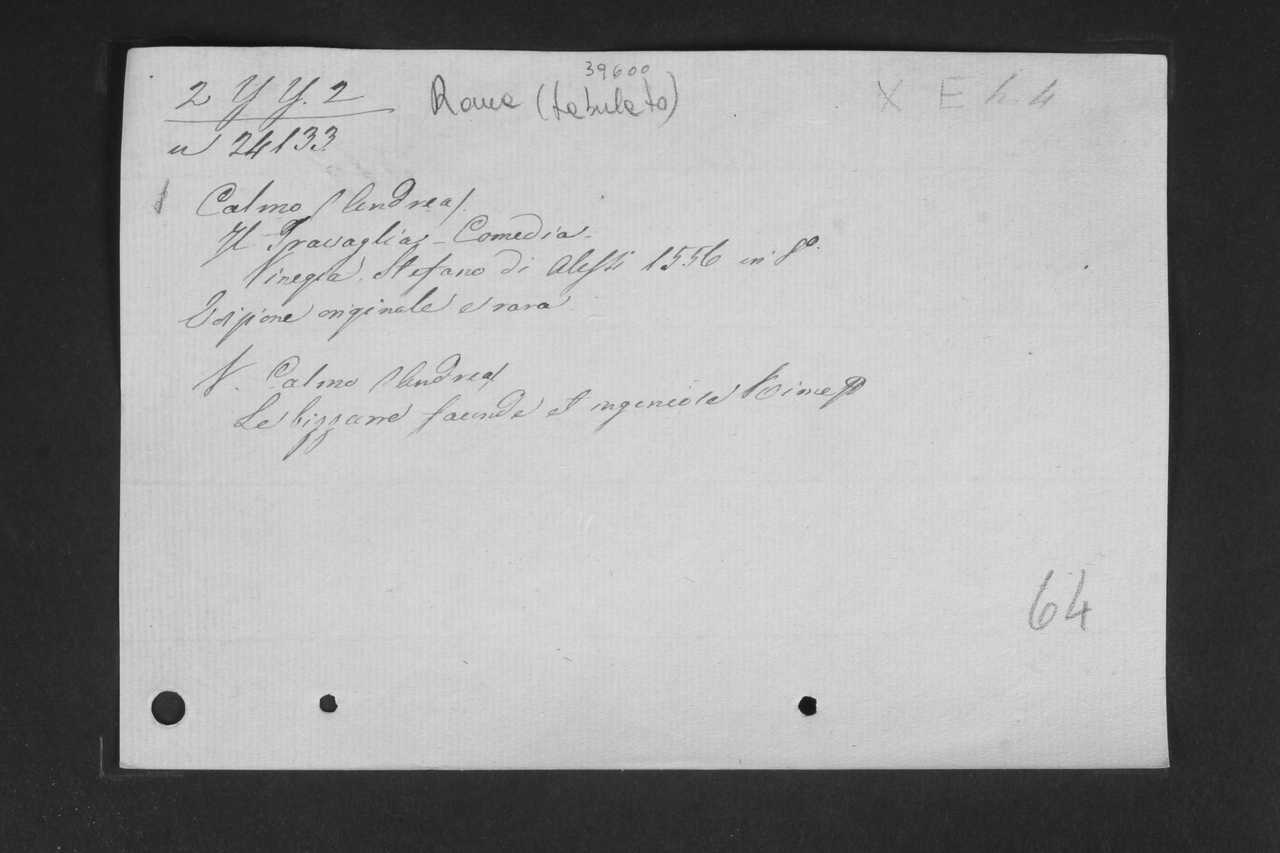 39600
2 Y Y. 2 Roma (tabulato) X E h. 4
n 24133
Calmo (Andrea).
Il Travaglia - Comedia.
Vinegia. Stefano di Alessi 1556 in 8°.
Edizione originale e rara
V. Calmo (Andrea)
Le bizzarre facunde et ingeniose Rime
64